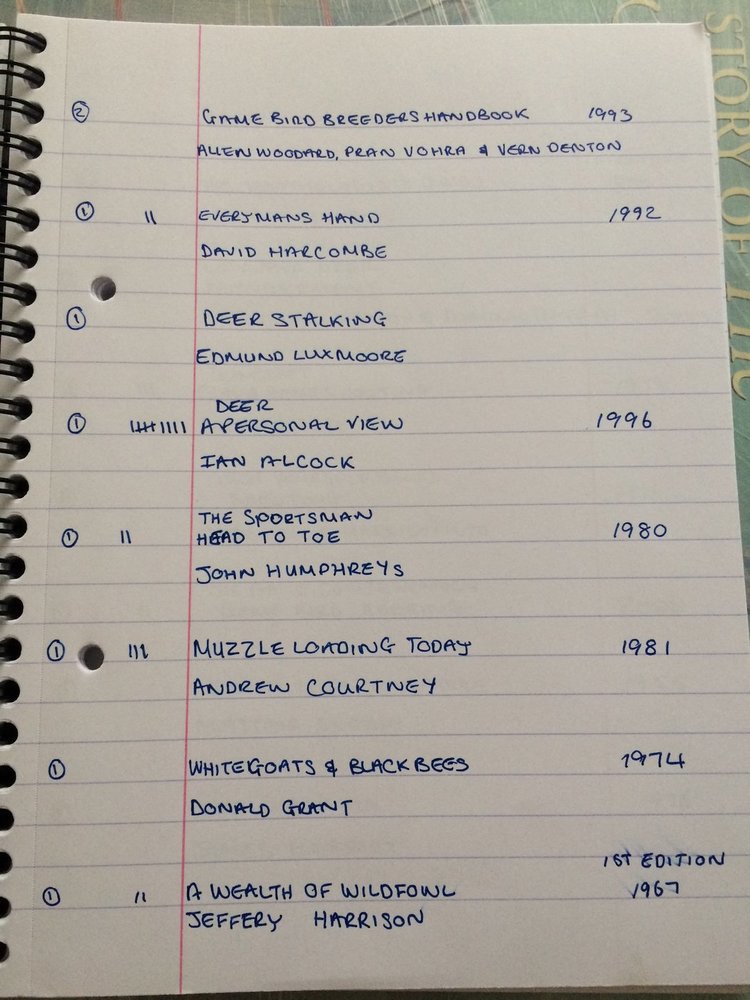 ② GAME BIRD BREEDERS HANDBOOK 1993
ALLEN WOODARD, PRAN VOHRA & VERN DENTON
① || EVERYMANS HAND 1992
DAVID HARCOMBE
① DEER STALKING
EDMUND LUXMOORE
DEER
① |||| |||| A PERSONAL VIEW 1996
IAN ALCOCK
THE SPORTSMAN
① || HEAD TO TOE 1980
JOHN HUMPHREYS
① ||| MUZZLE LOADING TODAY 1981
ANDREW COURTNEY
① WHITE GOATS & BLACK BEES 1974
DONALD GRANT
1ST EDITION
① || A WEALTH OF WILDFOWL 1967
JEFFERY HARRISON
STORY OF